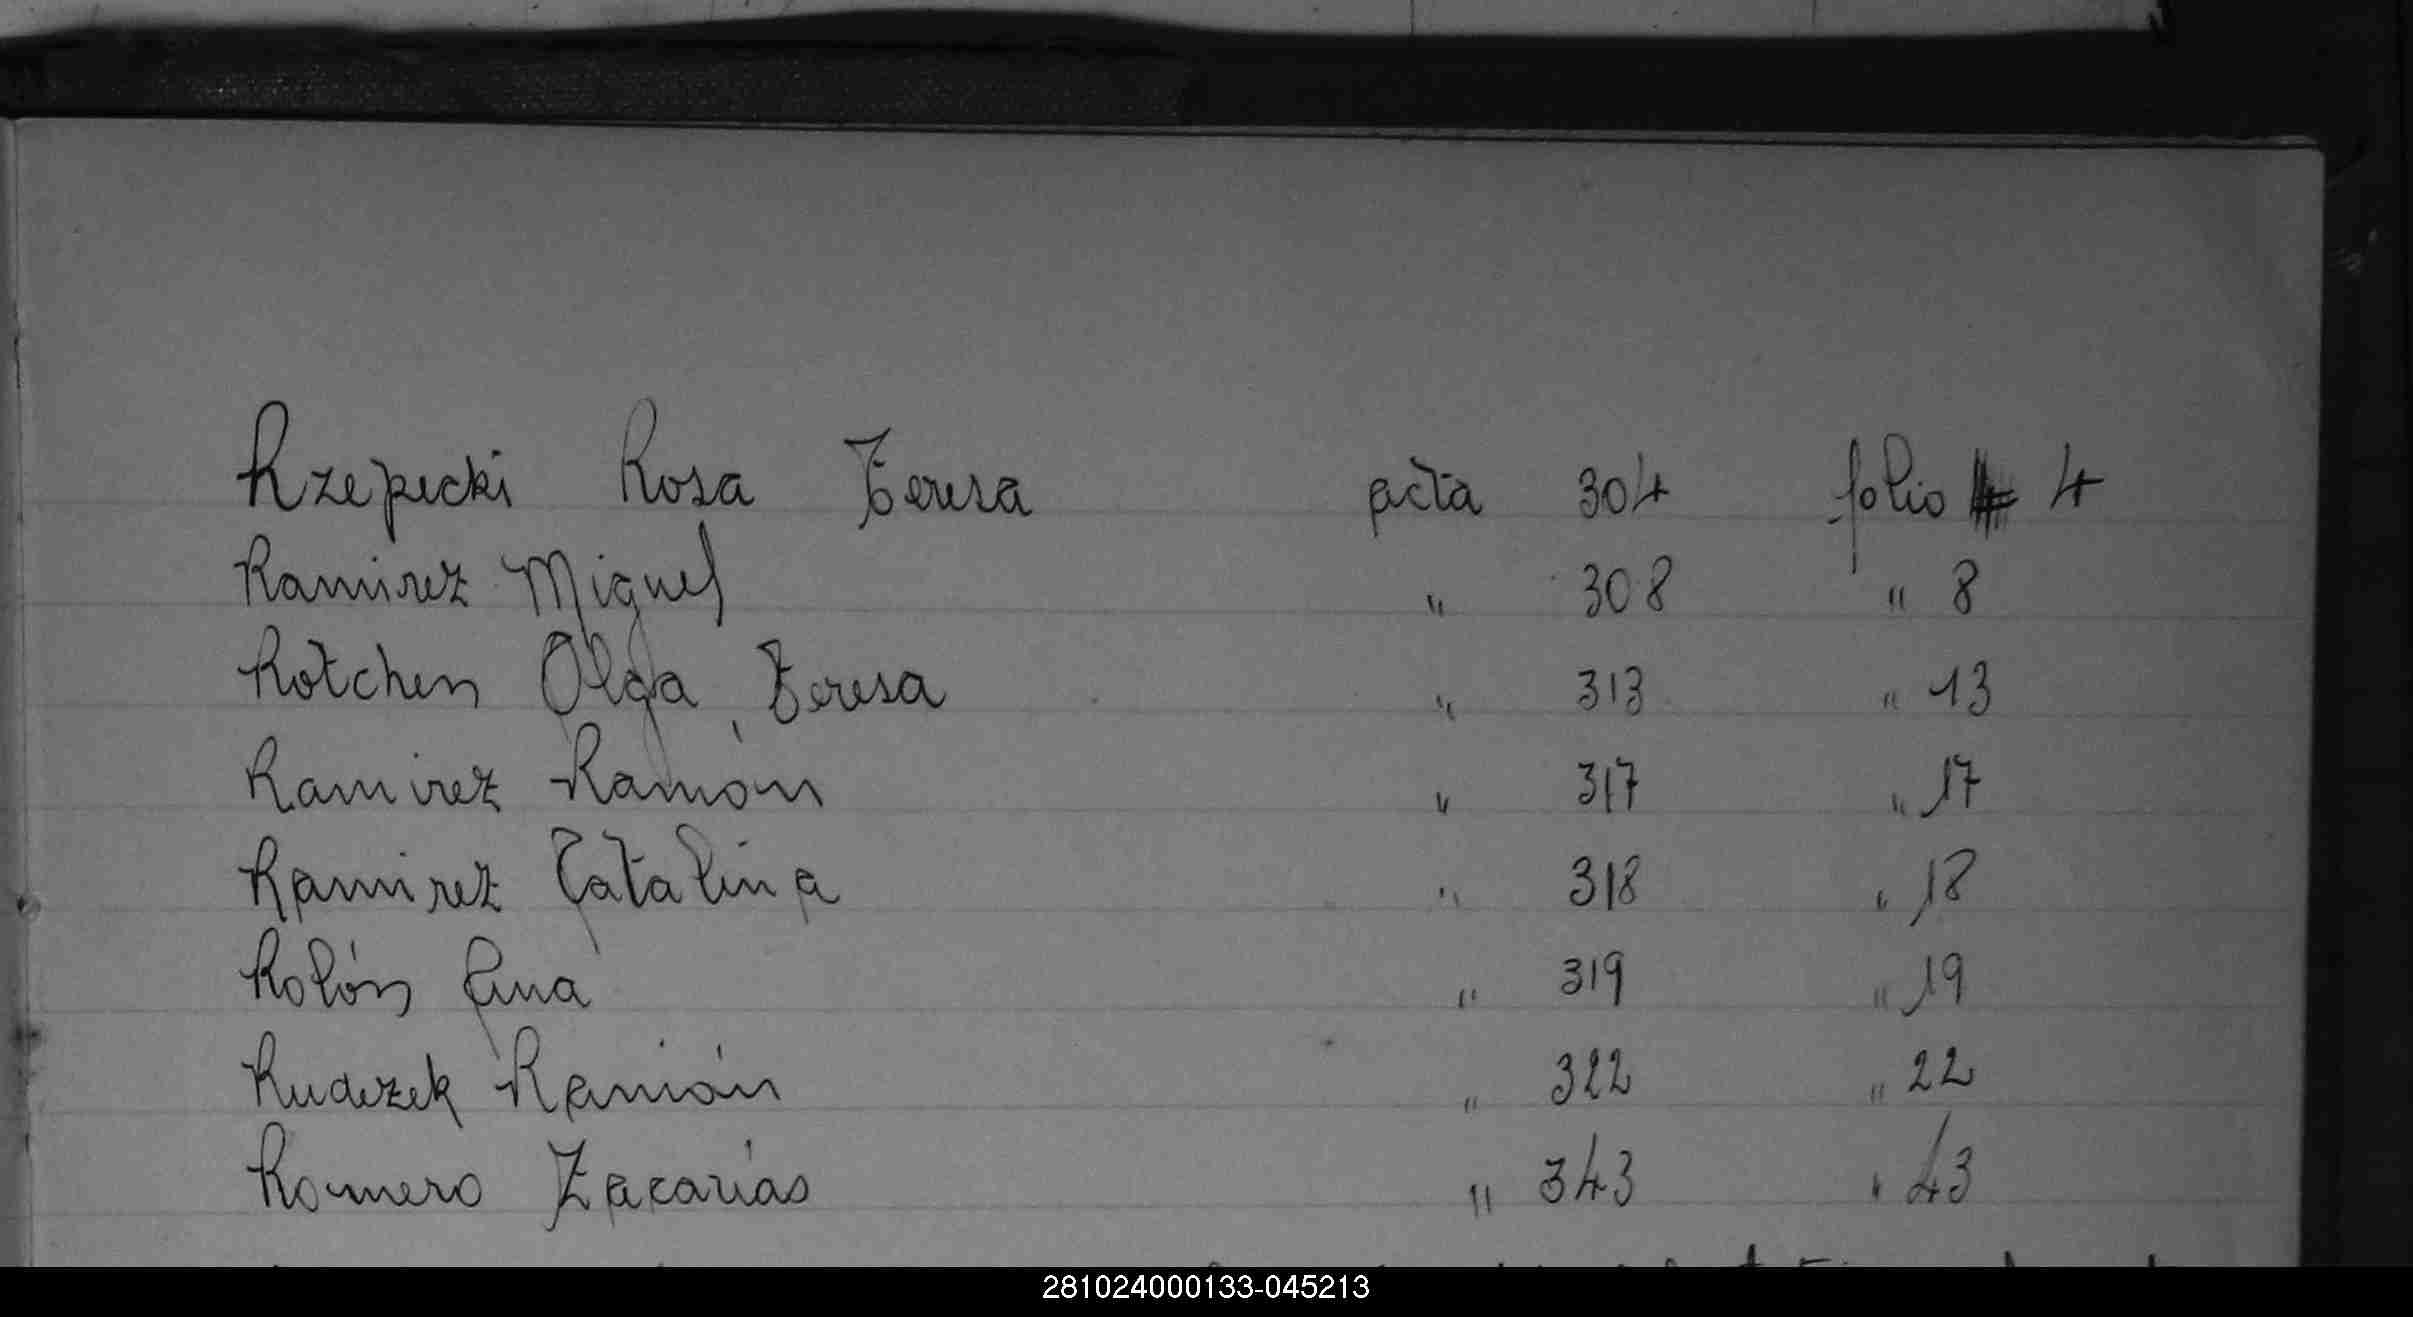 Rzepecki Rosa Teresa acta 304 folio 4
Ramirez Miguel " 308 " 8
Rotchen Olga Teresa " 313 " 13
Ramirez Ramón " 317 " 17
Ramirez Catalina " 318 " 18
Rolón Ana " 319 " 19
Rudezek Ramón " 322 " 22
Romero Zacarías " 343 " 43
281024000133-045213